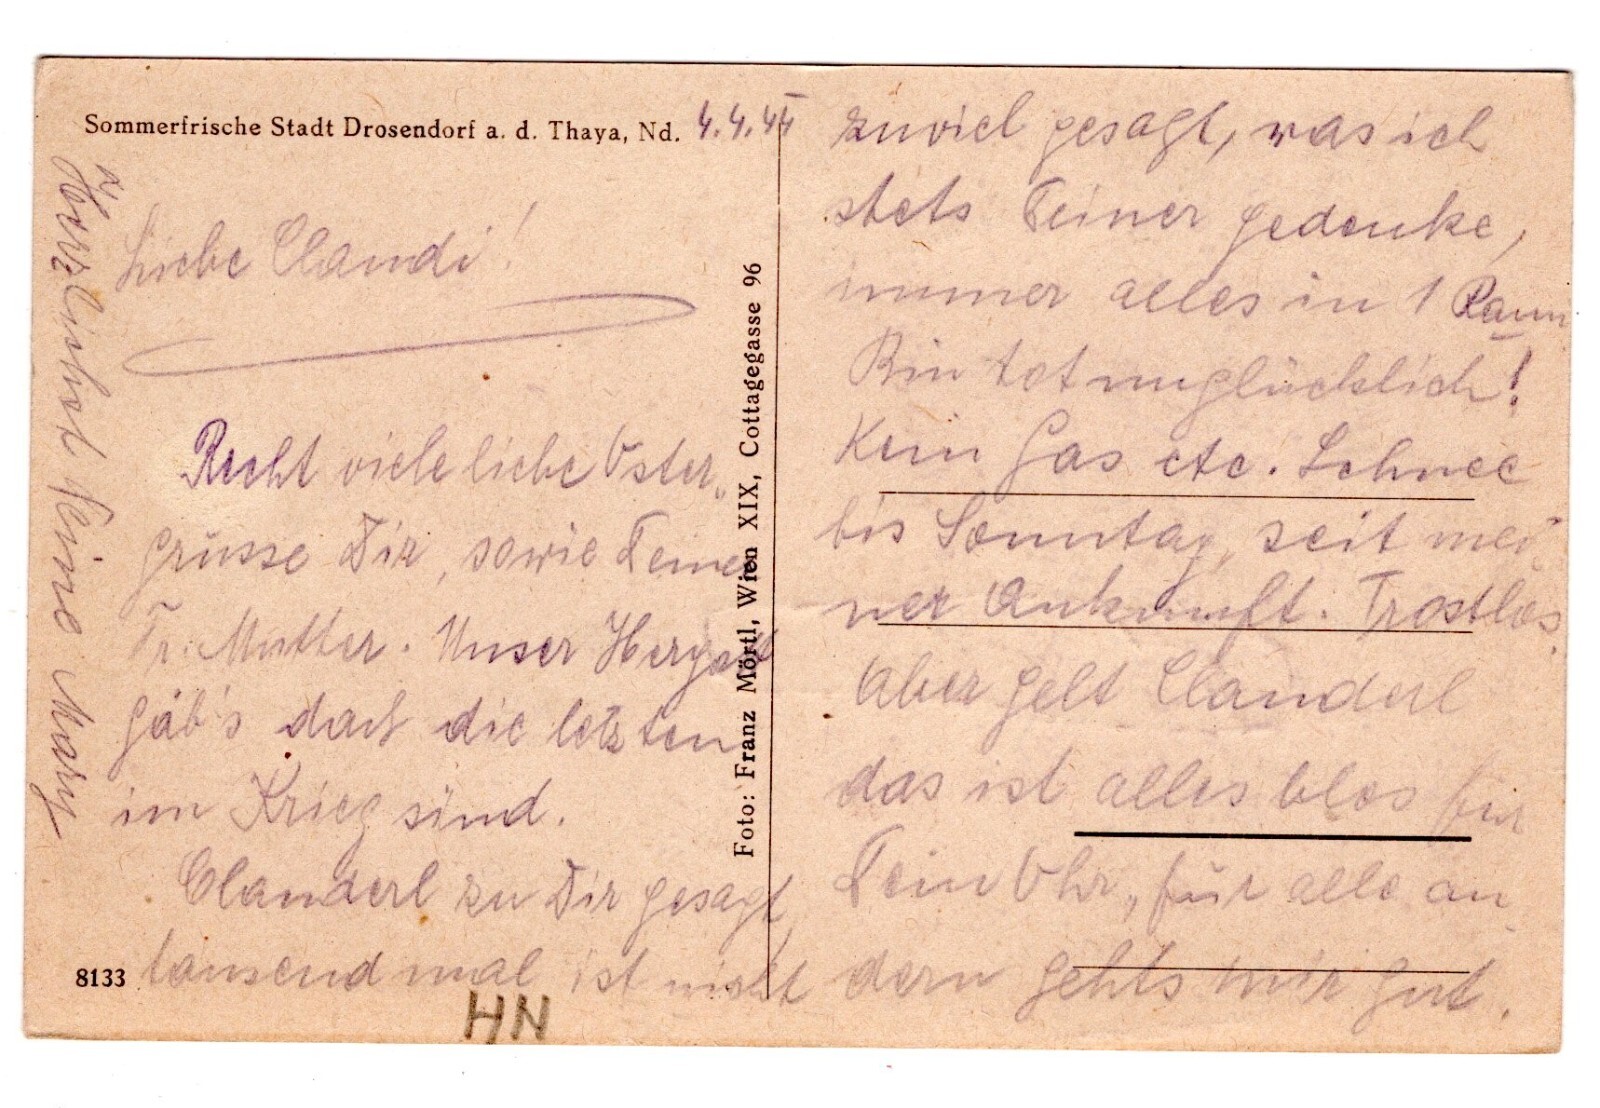 Sommerfrische Stadt Drosendorf a. d. Thaya, Nd. 4.4.44
Liebe Claudi!
Recht viele liebe Oster-
grüsse Dir, sowie Deiner
Fr. Mutter. Unser Hergott
gäb's daß die letzten
im Krieg sind.
Clauderl zu Dir gesagt,
tausend mal ist nicht
8133
HN
Herzlichst Deine Mary
Foto: Franz Mörtl, Wien XIX, Cottagegasse 96
zuviel gesagt, was ich
stets Deiner gedenke,
immer alles in 1 Raum
Bin totunglücklich!
Kein Gas etc. Schnee
bis Sonntag, seit mei
ner Ankunft. Trostlos.
Aber gelt Clauderl
das ist alles blos für
Dein Ohr, für alle an
dern gehts mir gut.